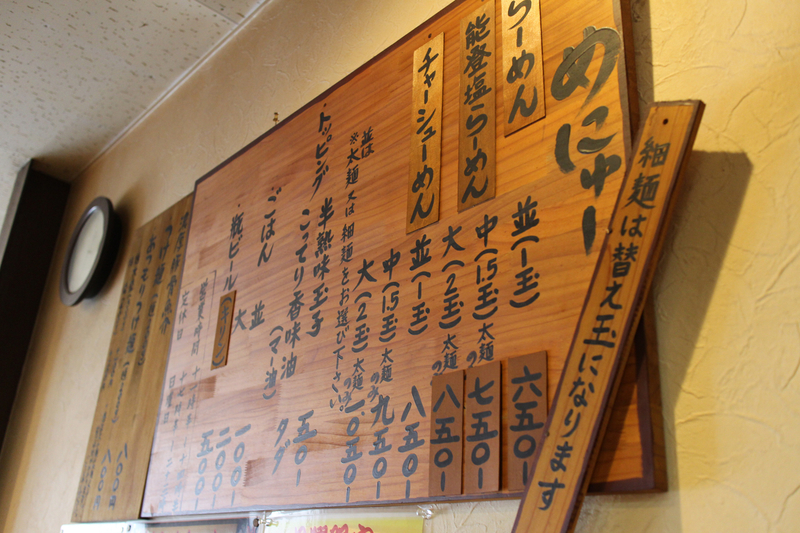 めにゅー
らーめん
能登塩らーめん
チャーシューめん
並(一玉) 六五〇-
中(1.5玉)太麺のみ 七五〇-
大(2玉)太麺のみ 八五〇-
並(一玉) 八五〇-
中(1.5玉)太麺のみ 九五〇-
大(2玉)太麺のみ 一〇五〇-
並は
※太麺又は細麺をお選び下さい。
トッピング 半熟味玉子 五〇-
こってり香味油(マー油) タダ
ごはん 並 一〇〇-
大 二〇〇-
瓶ビール(キリン) 五〇〇-
営業時間
定休日
細麺は替え玉になります